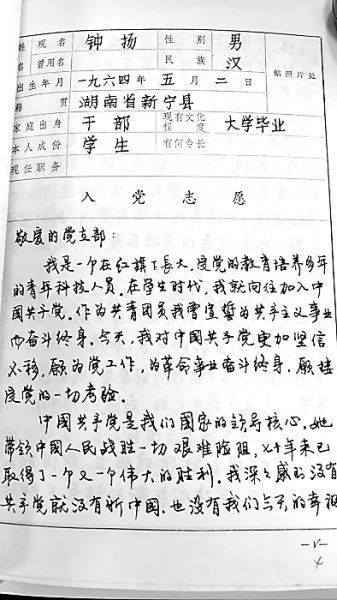 姓 现名 钟扬 性别 男
名 曾用名 民族 汉
出生年月 一九六四年 五月 二日 贴照片处
籍贯 湖南省新宁县
家庭出身 干部 现有文化程度 大学毕业
本人成份 学生 有何专长
现任职务
入党志愿
敬爱的党支部：
我是一个在红旗下长大，受党的教育培养多年
的青年科技人员。在学生时代，我就向往加入中
国共产党。作为共青团员我曾宣誓为共产主义事业
而奋斗终身。今天，我对中国共产党更加坚信
不移，愿为党工作，为革命事业奋斗终身，愿接
受党的一切考验。
中国共产党是我们国家的领导核心，她
带领中国人民战胜一切艰难险阻，七十年来已
取得了一个又一个伟大的胜利。我深深感到没有
共产党就没有新中国，也没有我们今天的幸福